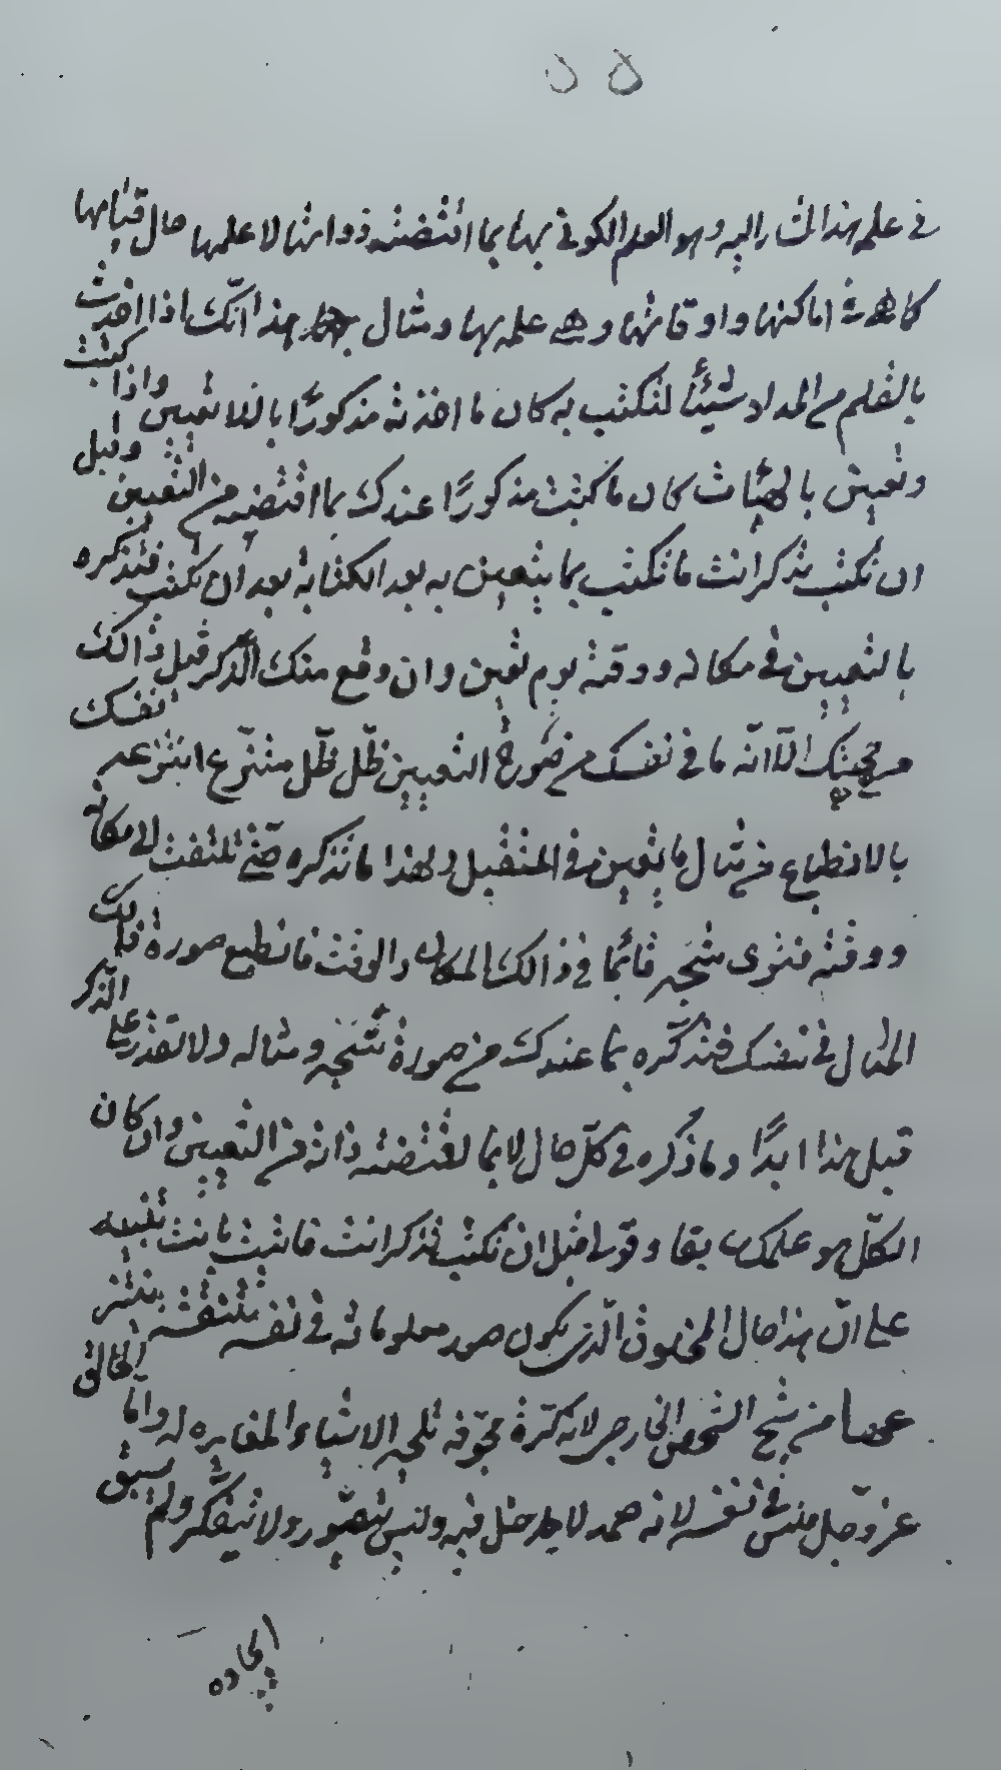 في علمه هذا المشار اليه وهو العلم الكوني بها بما اقتضته ذواتها لا علمها حال قيامها
كل في اماكنها واوقاتها وهي علمه بها ومثال هذا انّك اذا اخذت
بالقلم من المداد شيئاً لتكتب به كان ما اخذته مذكورًا باللاتعيين واذا كتبت
وتعين بالهيئات كان ما كتبت مذكورًا عندك بما اقتضيه من التعيين وقبل
ان تكتب تذكر انت ما تكتب بما يتعين به بعد الكتابة بعد ان تكتب فتذكره
بالتعيين في مكانه ووقته يوم تعين وان وقع منك الذّكر قبل ذالك
من الّا انّه ما في نفسك من التعيين ظلّ ظلّ منتزع انتزعه نفسك
بالانطباع من مثال ما يتعين في المستقبل ولهذا ما تذكره حتّى تلتفت الى مكانه
ووقته فترى شبحه قائما في ذالك المكان والوقت فانطبع صورة ذالك
المثال في نفسك فتذكّره بما عندك من صورة شبحه ومثاله ولا تقدر على الذّكر
قبل هذا ابدًا وما ذكره في كلّ حال لا بما تقتضته ذاته من التعيين وان كان
الكلّ هو علمك وقولي قبل ان تكتب تذكر انت فانت تنبيه
على انّ هذا حال المخلوق الّذي يكون صور معلوماته في نفسه بنتنز
من شبح الشخص الخارجي لانه كرة مجوّفة تلجه الاشياء المغايره له وامّا الخالق
عزّ وجل فليس في نفسه لانه صمد لا مدخل فيه وليس يتصوّر ولا يتفكّر ولم يسبق
ايجاده